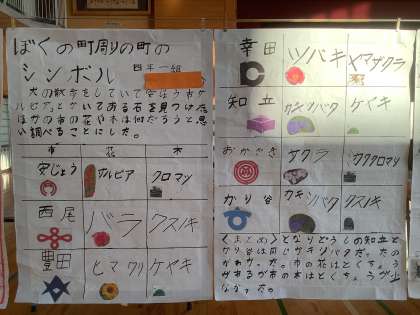 ぼくの町周りの町の
シンボル 四年一組
犬の散歩をしていて安じょう市サ
ルビアとかいてある石を見つけた
ほかの市の花や木は何だろうと思
い調べることにした。
市 花 木
安じょう サルビア クロマツ
西尾 バラ クスノキ
豊田 ヒマワリ ケヤキ
幸田 ツバキ ヤマザクラ
知立 カキツバタ ケヤキ
おかざき サクラ クロマツ
かり谷 カキツバタ クスノキ
〈まとめ〉となりどうしの知立と
かり谷は同じカキツバタだった。
がわかった。市の花はとくちょう
があるが市の木はとくちょうが少
なかった。